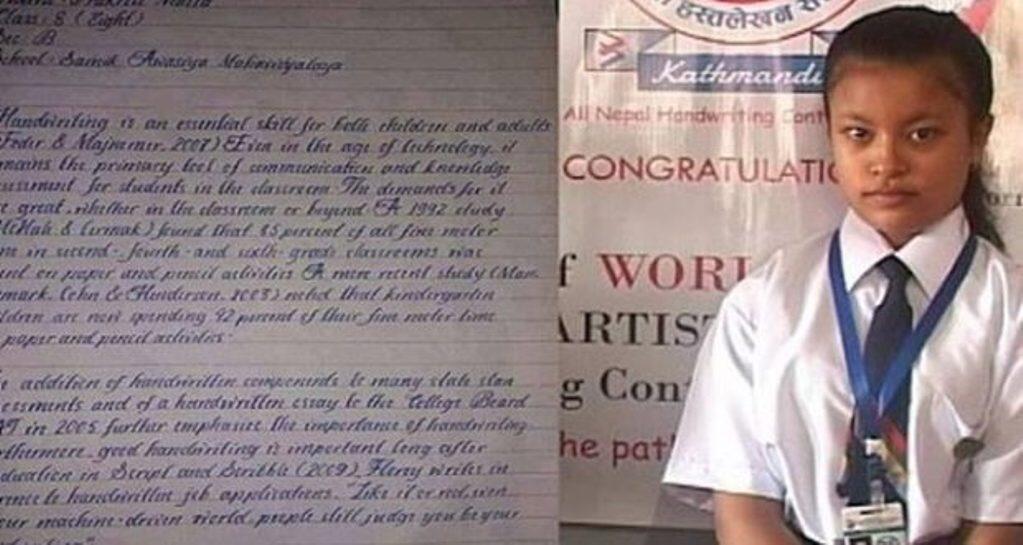 Class : 8 (Eight)
Sec : B
School : Sainik Awasiya Mahavidyalaya
Handwriting is an essential skill for both children and adults
(Feder & Majnemer, 2007) Even in the age of technology, it
the primary tool of communication and knowledge
for students in the classroom The demands for it
great, whether in the classroom or beyond A 1992 study
& Cermak) found that 85 percent of all fine motor
in second-, fourth- and sixth-grade classrooms was
on paper and pencil activities A more recent study (Marr,
Cohn & Henderson, 2003) noted that kindergarten
are now spending 42 percent of their fine motor time
paper and pencil activities.
addition of handwritten components to many state stan
and of a handwritten essay to the College Board
in 2005 further emphasize the importance of handwriting
good handwriting is important long after
education in Script and Scribble (2009), Florey writes in
to handwritten job applications, "Like it or not, even
our machine-driven world, people still judge you by your
हस्तलेखन
Kathmandu
All Nepal Handwriting Cont
CONGRATULATI
f WORL
ARTIST
g Con
he pat